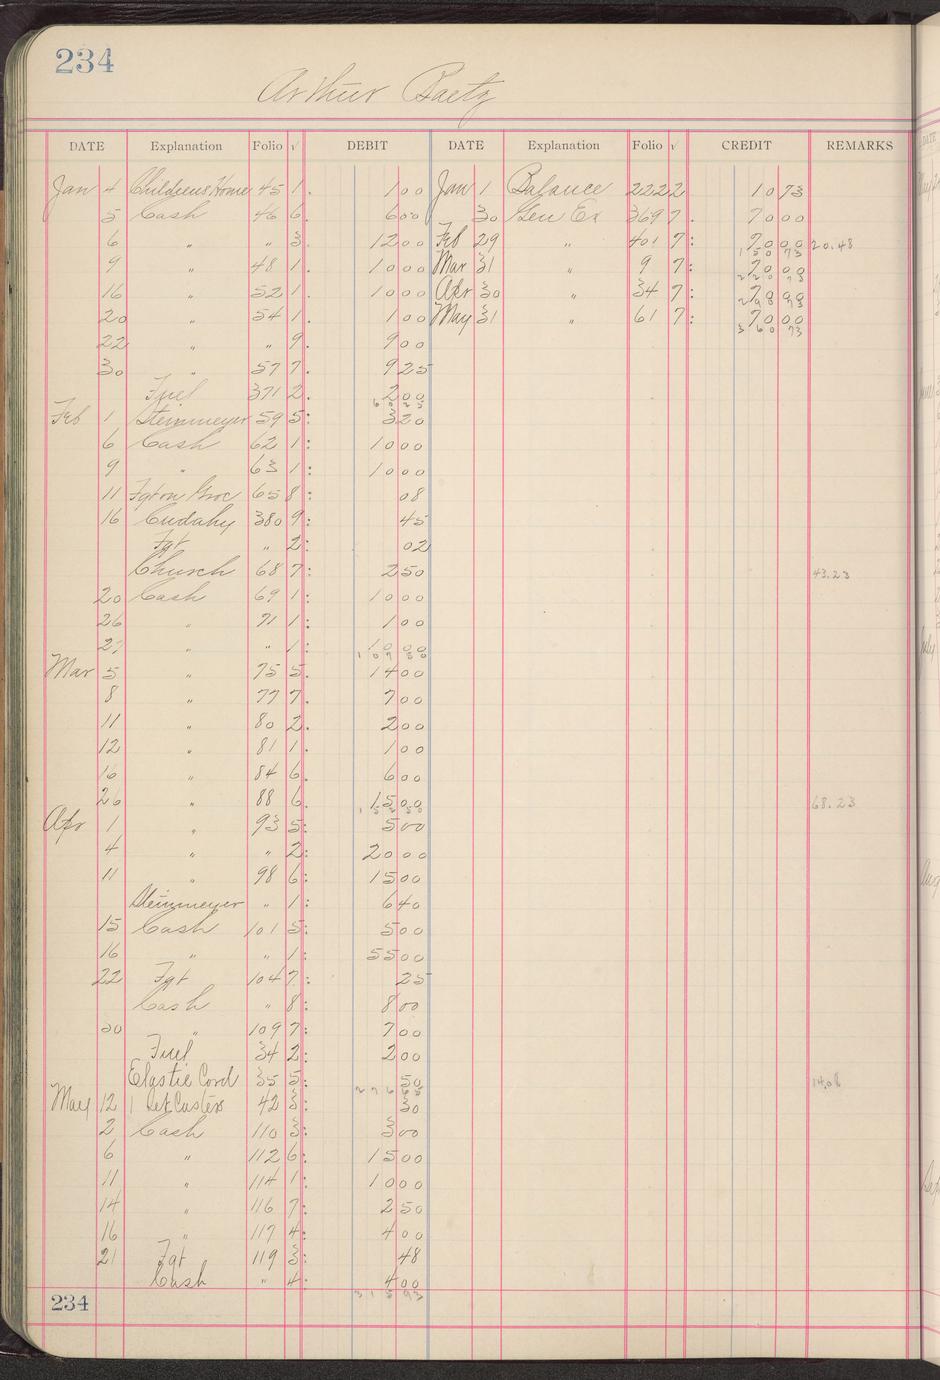 234
Arthur Baetz
DATE Explanation Folio √ DEBIT DATE Explanation Folio √ CREDIT REMARKS
Jan 4 Childrens Home 45 1. 1 00 Jan 1 Balance 222 2 10 73
5 Cash 46 6. 6 00 30 Gen Ex 369 7. 70 00
6 " " 3. 12 00 Feb 29 " 401 7: 70 00 20.48
150 73
9 " 48 1. 10 00 Mar 31 " 9 7: 70 00
220 73
16 " 52 1. 10 00 Apr 30 " 34 7: 70 00
298 93
20 " 54 1. 1 00 May 31 " 61 7: 70 00
360 73
22 " " 9. 9 00
30 " 57 7. 9 25
Fuel 371 2. 2 00
60 25
Feb 1 Steinmeyer 59 5: 3 20
6 Cash 62 1: 10 00
9 " 63 1: 10 00
11 Fgt on Groc 65 8: 08
16 Cudahy 380 9: 45
Fgt " 2: 02
Church 68 7: 2 50 43.23
20 Cash 69 1: 10 00
26 " 71 1: 1 00
27 " " 1: 10 00
107 50
Mar 5 " 75 5. 14 00
8 " 77 7. 7 00
11 " 80 2. 2 00
12 " 81 1. 1 00
16 " 84 6. 6 00
26 " 88 6. 15 00 68.23
152 50
Apr 1 " 93 5: 5 00
4 " " 2: 20 00
11 " 98 6: 15 00
Steinmeyer " 1: 6 40
15 Cash 101 5: 5 00
16 " " 1: 55 00
22 Fgt 104 7: 25
Cash " 8: 8 00
30 " 109 7: 7 00
Fuel 34 2: 2 00
Elastic Cord 35 5: 50 14.08
276 65
May 12 1 Set Casters 42 3: 30
2 Cash 110 3: 3 00
6 " 112 6: 15 00
11 " 114 1: 10 00
14 " 116 7: 2 50
16 " 117 4: 4 00
21 Fgt 119 3: 48
Cash " 4: 4 00
315 93
234